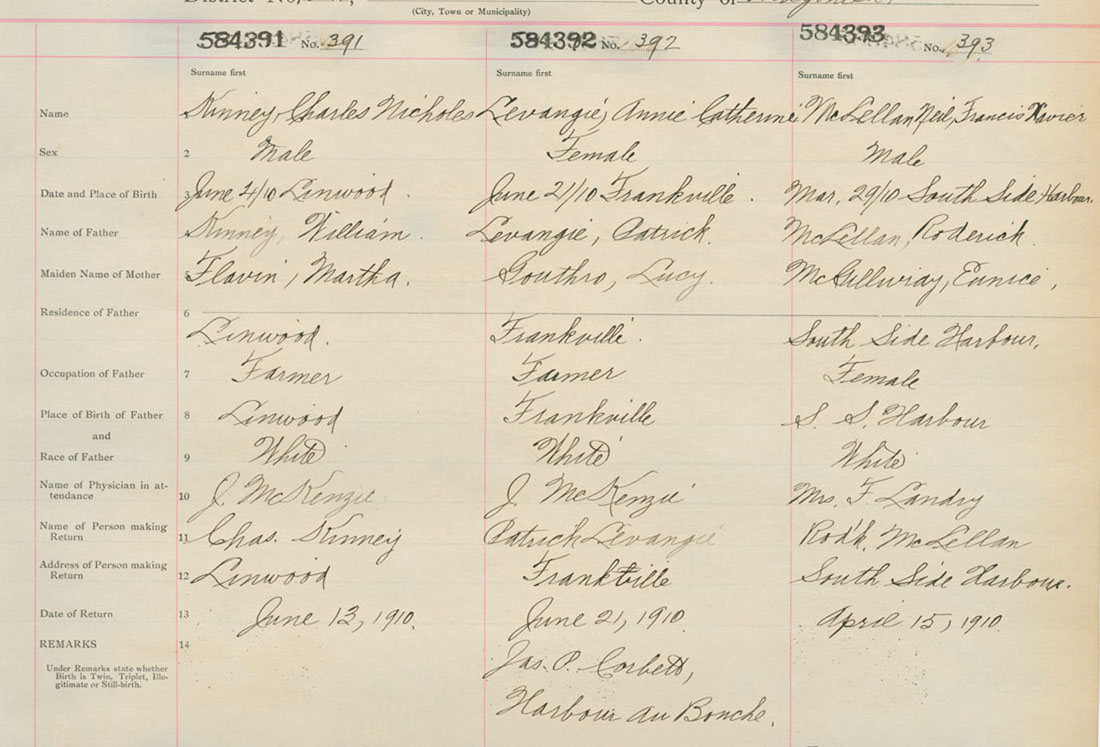 District No,
(City, Town or Municipality)
County of
584391 No. 391 584392 No. 392 584393 No. 393
Surname first Surname first Surname first
Name Kinney, Charles Nicholes Levangie, Annie Catherine McLellan Neil, Francis Xavier
Sex 2 Male Female Male
Date and Place of Birth 3 June 4/10 Linwood. June 21/10 Frankville. Mar. 29/10 South Side Harbour.
Name of Father Kinney, William. Levangie, Patrick. McLellan, Roderick.
Maiden Name of Mother 5 Flavin, Martha. Gouthro, Lucy. McGillivray, Eunice,
Residence of Father 6
Linwood. Frankville. South Side Harbour,
Occupation of Father 7 Farmer Farmer Female
Place of Birth of Father 8 Linwood Frankville S. S. Harbour
and
Race of Father 9 White White White
Name of Physician in at-
tendance 10 J. McKenzie J. McKenzie Mrs. F. Landry
Name of Person making
Return 11 Chas. Kinney Patrick Levangie Rod'k. McLellan
Address of Person making
Return 12 Linwood Frankville South Side Harbour.
Date of Return 13 June 13, 1910. June 21, 1910. April 15, 1910.
REMARKS 14
Under Remarks state whether
Birth is Twin, Triplet, Ille-
gitimate or Still-birth.
Jas. P. Corbett,
Harbour au Bouche.